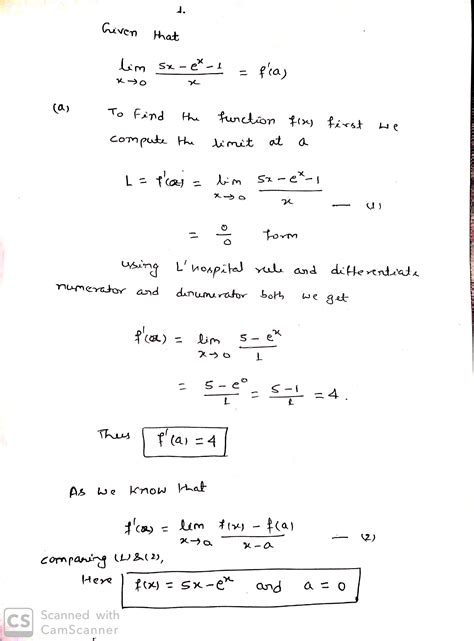 1.
Given that
lim x→0 (5x - e^x - 1)/x = f'(a)
(a) To Find the function f(x) first we
compute the limit at a
L = f'(a) = lim x→0 (5x - e^x - 1)/x — (1)
= 0/0 form
using L'hospital rule and differentiate
numerator and denumerator both we get
f'(a) = lim x→0 (5 - e^x)/1
= (5 - e^0)/1 = (5 - 1)/1 = 4.
Thus f'(a) = 4
As we know that
f'(a) = lim x→a (f(x) - f(a))/(x - a) — (2)
comparing (1) & (2),
Here f(x) = 5x - e^x and a = 0
CS Scanned with
CamScanner